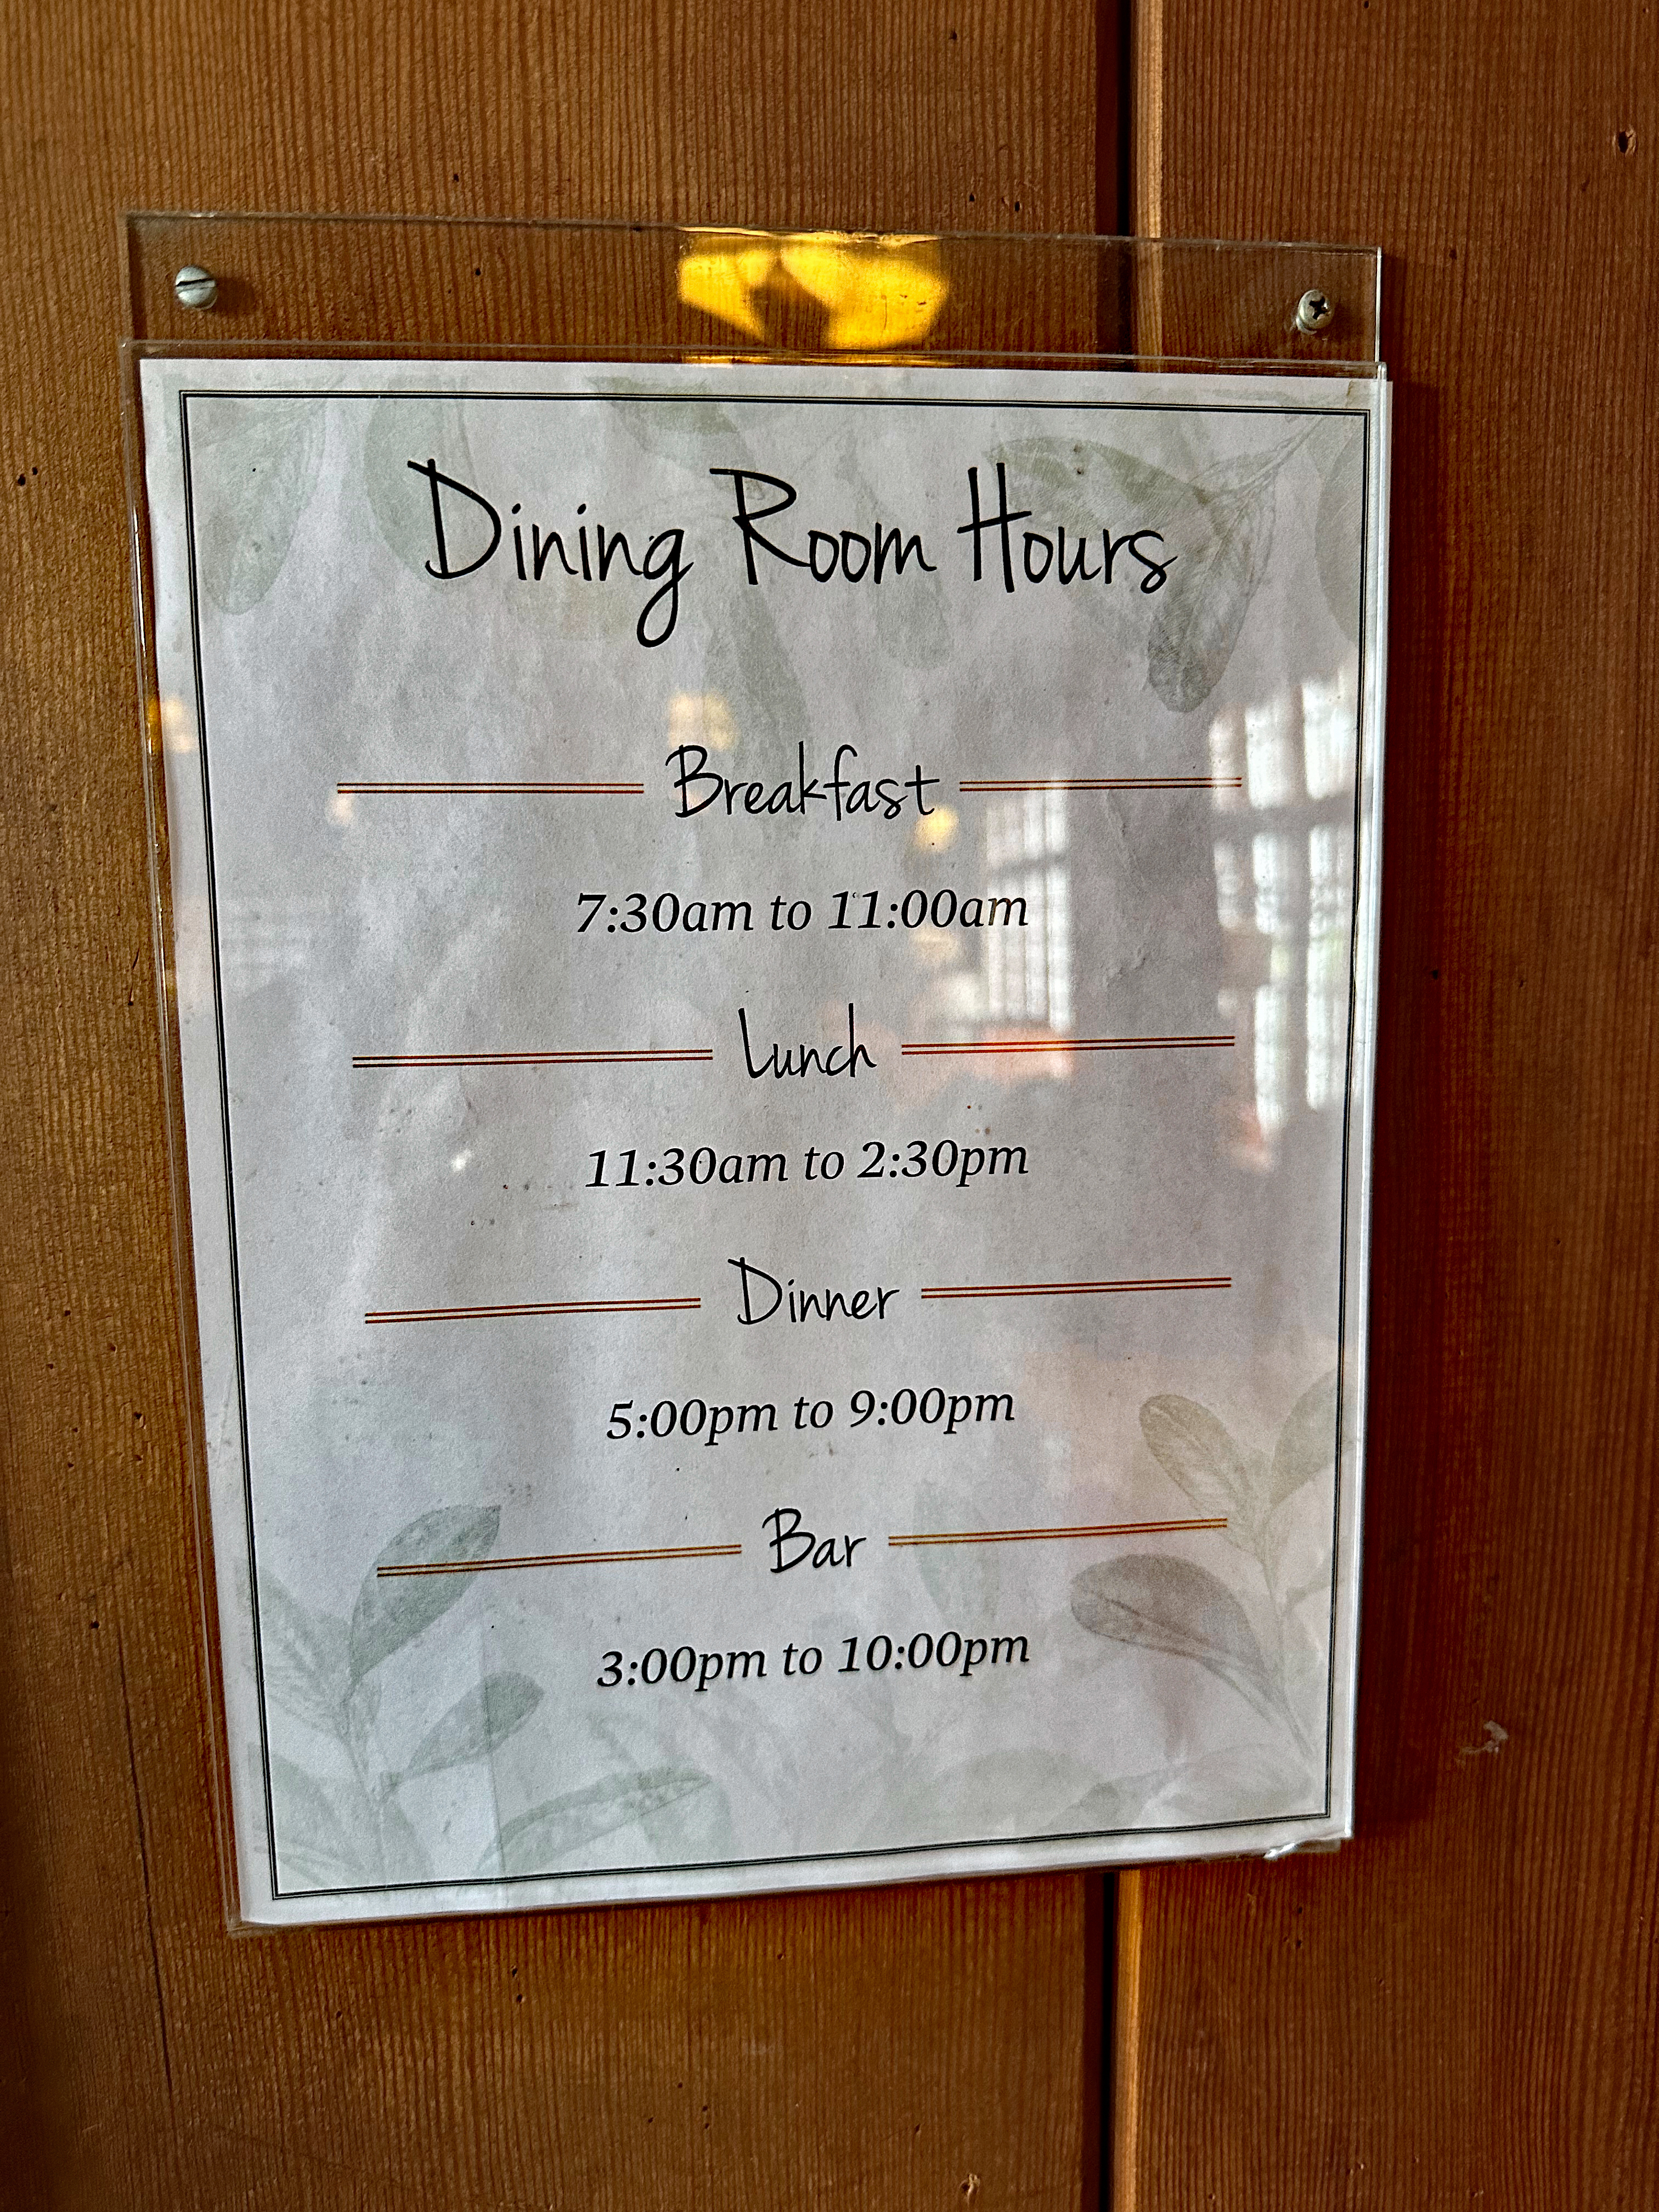 Dining Room Hours
Breakfast
7:30am to 11:00am
Lunch
11:30am to 2:30pm
Dinner
5:00pm to 9:00pm
Bar
3:00pm to 10:00pm